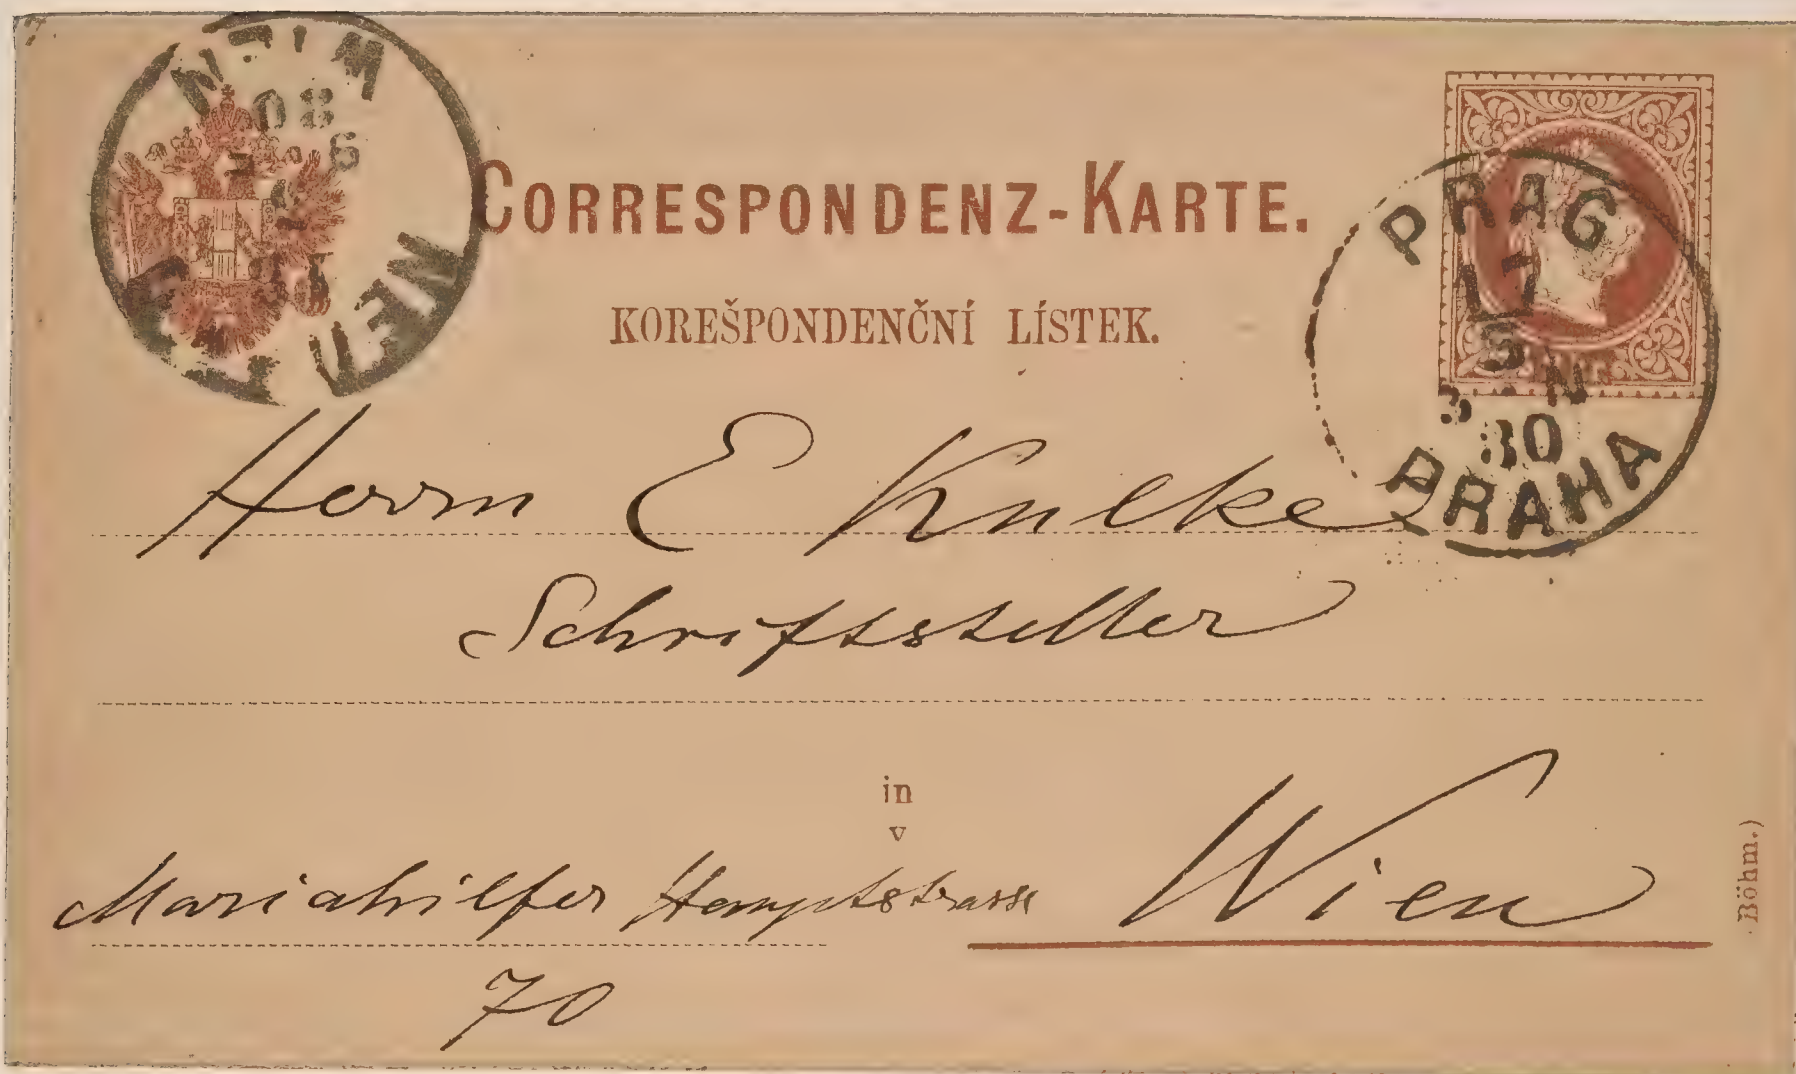 CORRESPONDENZ-KARTE.
KOREŠPONDENČNÍ LÍSTEK.
PRAG
17
5
3 N
80
PRAHA
WIEN
80
Herrn E Kulke
Schriftsteller
in
v
Mariahilfer Hauptstrasse
Wien
70
Böhm.)